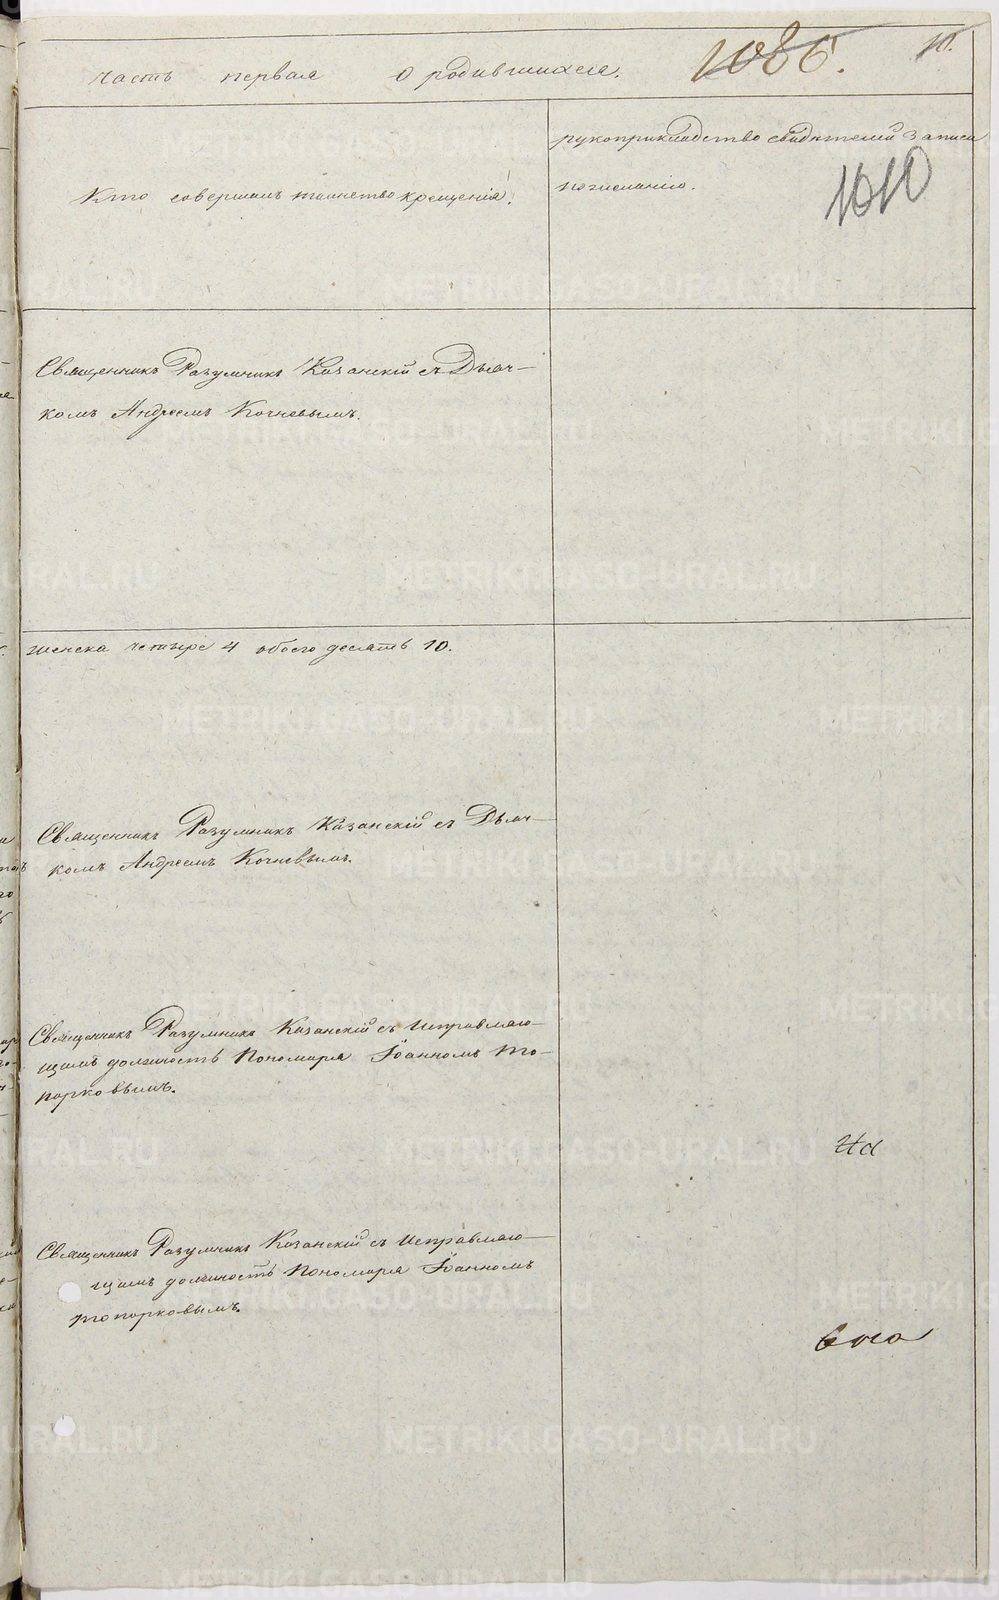 часть первая о родившихся.
1086.
10.
Кто совершалъ таинство крещенія.
рукоприкладство свидѣтелей записи
по желанію.
1010
Священникъ Разумникъ Казанскій съ Дьяч-
комъ Андреемъ Кочневымъ.
женска четыре 4 обоего десять 10.
Священникъ Разумникъ Казанскій съ Дьяч-
комъ Андреемъ Кочневымъ.
Священникъ Разумникъ Казанскій съ Исправляю-
щимъ должность Пономаря Іоанномъ То-
порковымъ.
Священникъ Разумникъ Казанскій съ Исправляю-
щимъ должность Пономаря Іоанномъ
Топорковымъ.
METRIKI.GASO-URAL.RU